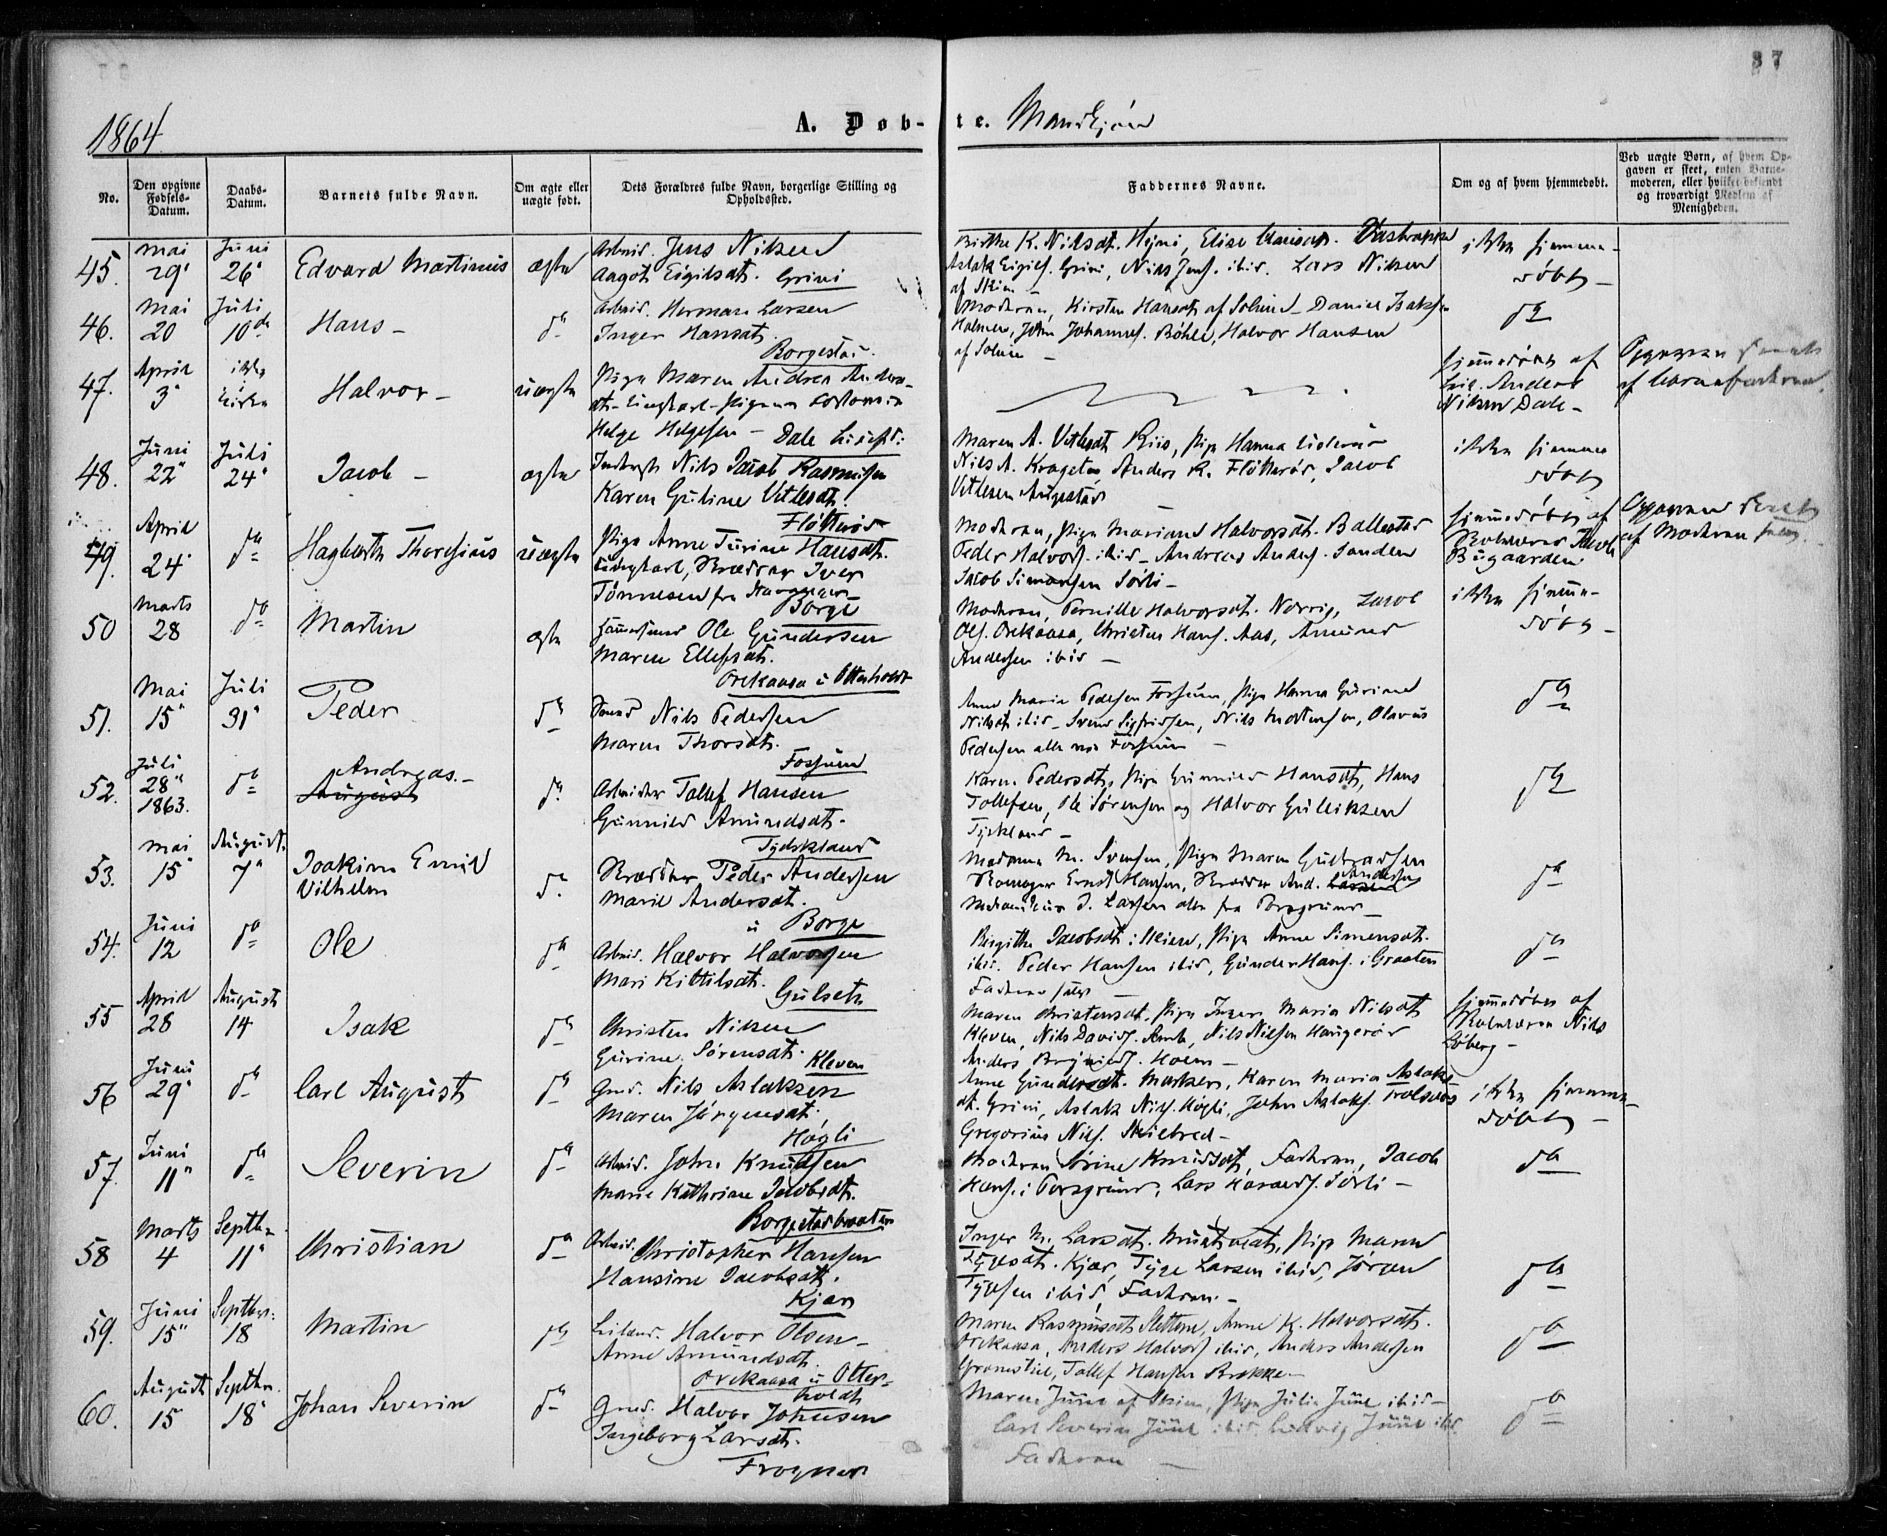 37
1864
A. Døb-te. Mandkjøn
No.
Den opgivne Fødsels-Datum.
Daabs-Datum.
Barnets fulde Navn.
Om ægte eller uægte født.
Dets Forældres fulde Navn, borgerlige Stilling og Opholdssted.
Faddernes Navne.
Om og af hvem hjemmedøbt.
Ved uægte Børn, af hvem Opgaven er skeet, enten Barnemoderen, eller hvilket bekjendt og troværdigt Medlem af Menigheden.
45. Mai 29 Juni 26 Edvard Martinus ægte
Arbeid. Jens Nilsen
Aagot Eigilsdt. Grini
Birthe K. Nilsdt. Hejni, Elise Clausdt.
Aslak Eigils. Grini, Nils Jens. ibid. Lars Nilsen
af Skien
ikke hjemme-
døbt
46. Mai 20 Juli 10de Hans do
Arbeid. Herman Larsen
Inger Hansdt.
Borgestad
Moderen, Kirsten Hansdt af Solum Daniel Isaks.
Holmen, John Johannes. Bøhle, Halvor Hansen
af Solum
do
47. April 3 ikke kirke Halvor uægte
Pige Maren Andrea Anders-
dt. Ungkarl
Helge Helgesen Dale
hjemmedøbt af
Anders
Nilsen Dale
Opgaven skeet
af Barnefaderen.
48. Juni 22 Juli 24 Jacob ægte
Nils Jacob Rasmussen
Karen Guline Vetlesdt.
Fløtterød
Maren A. Vetlesdt Riis, Pige Hanna
Nils A. Kragetøs Anders R. Fløtterød, Jacob
Vetlesen Augestad
ikke hjemme
døbt
49. April 24 do Hagbarth Thorsius uægte
Pige Anne Turine Hansdt.
Ungkarl, Skrædder Iver
Tønnesen fra
Borge
Moderen, Pige Mariane Halvorsdt. Ballestad
Peder Halvors. ibid. Andreas Anders. Sanden
Jacob Simonsen Sørli
hjemmedøbt af
Skolelærer Jacob
Bugaarden
Opgaven skeet
af Moderen
50 Marts 28 do Martin ægte
Ole Gundersen
Maren Ellefsdt.
Orekaasa u Otterholdt
Moderen, Pernille Halvorsdt. Jacob
Ols. Orekaasa, Christen Hans. Aas, Amund
Andersen ibid
ikke hjemme-
døbt
51. Mai 15 Juli 31 Peder do
Nils Pedersen
Maren Thorsdt.
Fossum
Anne Marie Pedersen Fossum, Pige Hanna Gurine
Nilsdt ibid Svend Sigfridsen, Nils Mortensen, Olavus
Pedersen alle ved Fossum
do
52. Juli 28 1863. do Andreas August do
Arbeider Tollef Hansen
Gunnild Amundsdt.
Tydskland
Karen Pedersdt, Pige Gunnild Hansdt, Hans
Tollefsen, Ole Sørensen og Halvor Gulliksen
Tyskland
do
53. Mai 15 August 7 Joakim Emil Vilhelm do
Skrædder Peder Andersen
Marie Andersdt.
u Borge
Madame M. Svensen, Pige Maren
Skomager Ernst Hansen, Skrædder And. Larsen Andersen
J. Larsen alle fra Porsgrund
do
54. Juni 12 do Ole do
Arbeid. Halvor Halvorsen
Mari Kittilsdt.
Gulseth
Birgitte Jacobsdt: Skien, Pige Anne Simensdt.
ibid. Peder Hansen ibid, Gunder Hans. i Graaten
Faderen selv
do
55 April 28 August 14 Isak do
Christen Nilsen
Gurine Sørensdt.
Kleven
Maren Christensdt, Pige Inger Maria Nilsdt
Kleven, Nils Davids. Nils Nilsen Haugerød
Anders Holm
hjemmedøbt af
Skolelærer Nils
Løberg
56 Juni 29 do Carl August do
Gmd. Nils Aslaksen
Maren Jørgensdt.
Høgli
Anne Gundersdt. Marker, Karen Maria Aslaks-
dt. Grini, Aslak Nils. Høgli, John Aslaks.
Gregorius Nils. Skilbred
ikke hjemme-
døbt
57. Juni 11 do Severin do
Arbeid. John Knudsen
Marie Kathrine Jacobsdt.
Borgestadbraaten
Moderen Sørine Knudsdt, Faderen, Jacob
Hans. i Porsgrund, Lars Sørli
do
58 Marts 4 Septbr. 11 Christian do
Arbeid. Christopher Hansen
Hansine Jacobsdt.
Kjær
Inger M. Larsdt. Pige Maren
Tygesdt. Kjær, Tyge Larsen ibid, Jørgen
Tygesen ibid, Faderen.
do
59. Juni 15 Septbr. 18 Martin do
Leilænd. Halvor Olsen
Anne Amundsdt.
Orekaasa u Otter-
holdt
Maren Rasmusdt Slettene, Anne K. Halvorsdt.
Orekaasa, Anders Halvors ibid, Anders Andersen
Tollef Hansen Brekke
do
60. August 15 Septbr. 18 Johan Severin do
Gmd. Halvor Johnsen
Ingeborg Larsdt.
Frogner
Maren Juul af Skien, Pige Julia Juul ibid
Carl Severin Juul ibid, Ludvig Juul ibid.
Faderen
do